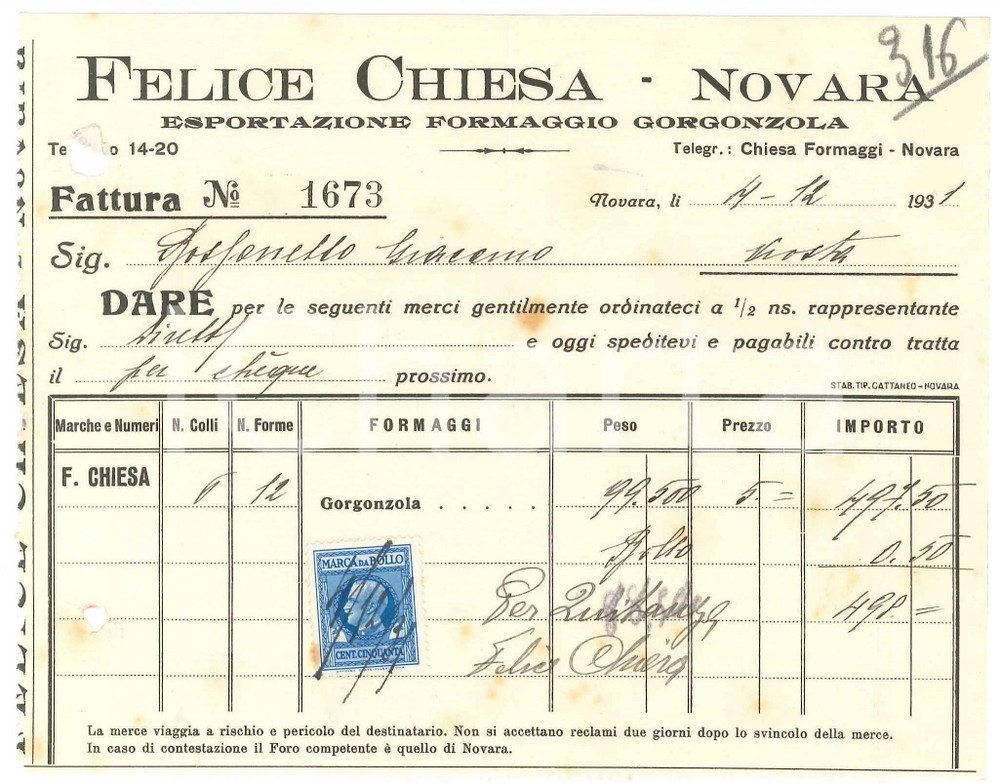 316
FELICE CHIESA - NOVARA
ESPORTAZIONE FORMAGGIO GORGONZOLA
14-20 Telegr.: Chiesa Formaggi - Novara
Fattura No 1673 Novara, li 4-12 1931
Sig. Giacomo Aosta
DARE per le seguenti merci gentilmente ordinateci a ½ ns. rappresentante
Sig. e oggi speditevi e pagabili contro tratta
il per chèque prossimo.
STAB. TIP. CATTANEO - NOVARA
Marche e Numeri N. Colli N. Forme FORMAGGI Peso Prezzo IMPORTO
F. CHIESA 6 12 Gorgonzola . . . . . 99.500 5.= 497.50
Bollo 0.50
MARCA DA BOLLO
CENT. CINQUANTA
Per Quitanza 498=
Felice Chiesa
La merce viaggia a rischio e pericolo del destinatario. Non si accettano reclami due giorni dopo lo svincolo della merce.
In caso di contestazione il Foro competente è quello di Novara.
FELICE CHIESA - NOVARA